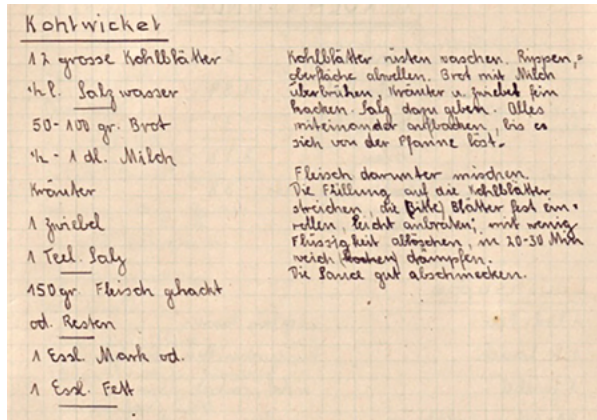 Kohlwickel
12 grosse Kohlblätter
½ l. Salzwasser
50-100 gr. Brot
½ - 1 dl. Milch
Kräuter
1 Zwiebel
1 Teel. Salz
150 gr. Fleisch gehackt
od. Resten
1 Essl. Mark od.
1 Essl. Fett
Kohlblätter rüsten waschen. Rippen,=
oberfläche abwellen. Brot mit Milch
überbrühen, Kräuter u. Zwiebel fein
hacken. Salz dazu geben. Alles
miteinander aufbacken, bis es
sich von der Pfanne löst.
Fleisch darunter mischen.
Die Füllung auf die Kohlblätter
streichen, die Blätter fest ein=
rollen, leicht anbraten; mit wenig
Flüssigkeit ablöschen, in 20-30 Min
weich (kochen) dämpfen.
Die Sauce gut abschmecken.